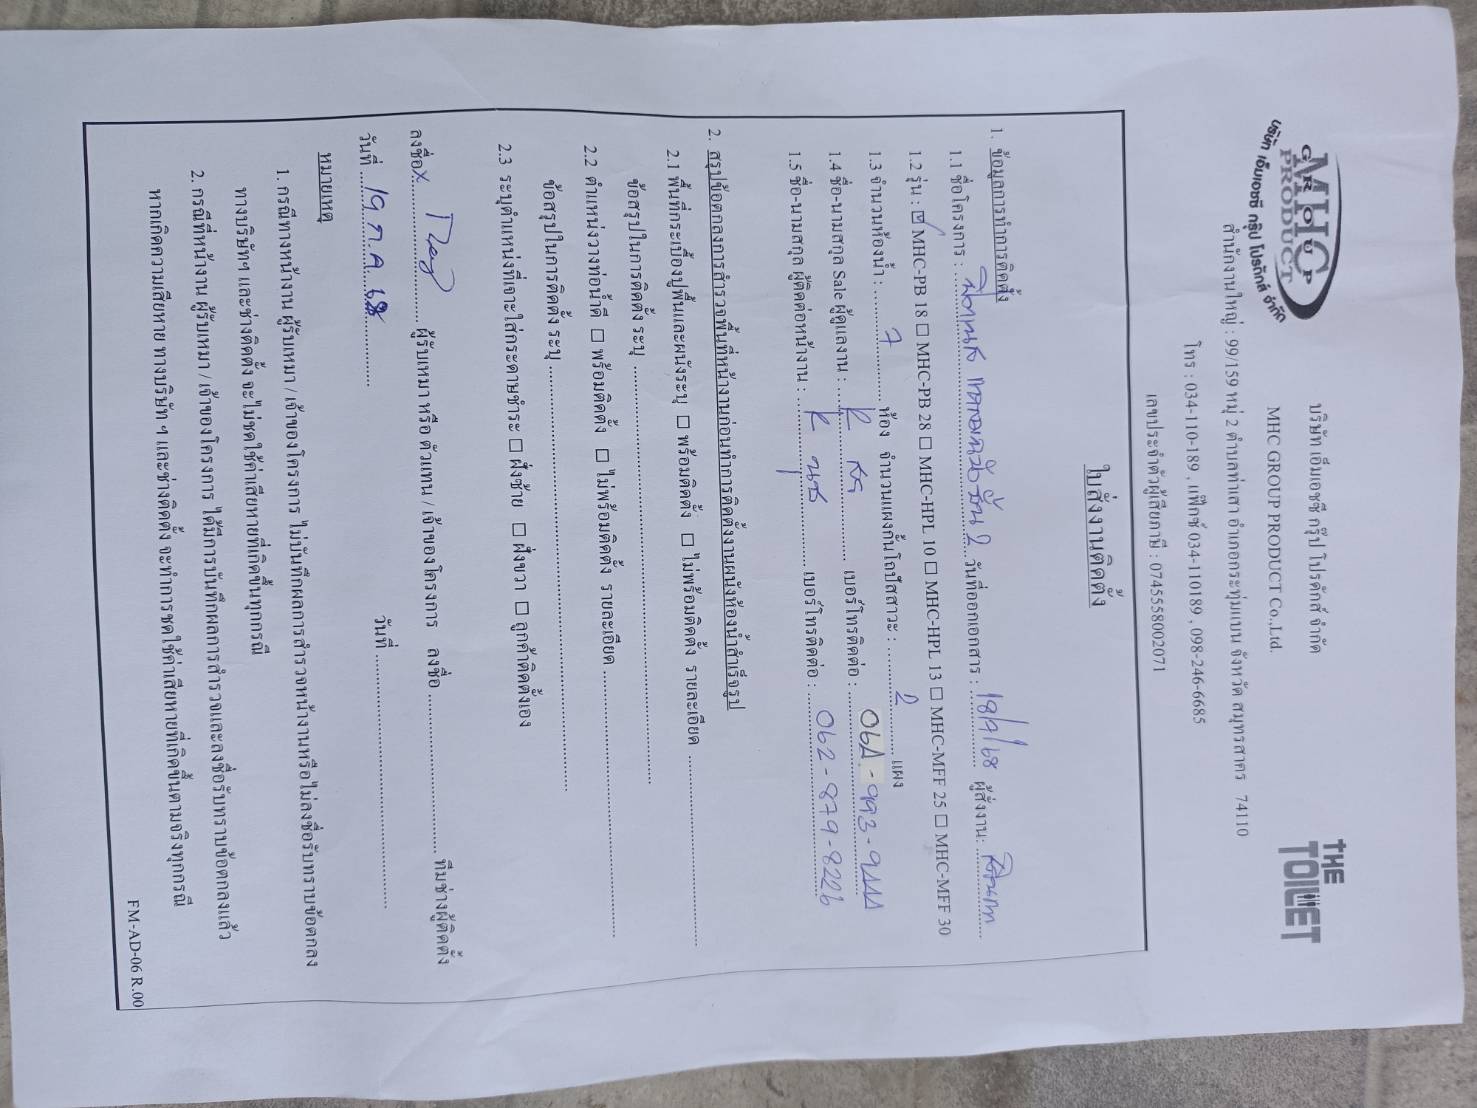 MHC
GROUP
PRODUCT
บริษัท เอ็มเอชซี กรุ๊ป โปรดักส์ จำกัด
บริษัท เอ็มเอชซี กรุ๊ป โปรดักส์ จำกัด
MHC GROUP PRODUCT Co.,Ltd.
THE
TOILET
สำนักงานใหญ่ : 99/159 หมู่ 2 ตำบลท่าเสา อำเภอกระทุ่มแบน จังหวัด สมุทรสาคร 74110
โทร : 034-110-189 , แฟ็กซ์ 034-110189 , 098-246-6685
เลขประจำตัวผู้เสียภาษี : 0745558002071
ใบสั่งงานติดตั้ง
1. ข้อมูลการทำการติดตั้ง
1.1 ชื่อโครงการ : ชั้น 2 วันที่ออกเอกสาร : 18/7/68 ผู้สั่งงาน:
1.2 รุ่น : ☑ MHC-PB 18 ☐ MHC-PB 28 ☐ MHC-HPL 10 ☐ MHC-HPL 13 ☐ MHC-MFF 25 ☐ MHC-MFF 30
1.3 จำนวนห้องน้ำ : 7 ห้อง จำนวนแผงกั้นโถปัสสาวะ : 2 แผง
1.4 ชื่อ-นามสกุล Sale ผู้ดูแลงาน : เบอร์โทรติดต่อ :
1.5 ชื่อ-นามสกุล ผู้ติดต่อหน้างาน : เบอร์โทรติดต่อ : 062-879-8226
2. สรุปข้อตกลงการสำรวจพื้นที่หน้างานก่อนทำการติดตั้งงานผนังห้องน้ำสำเร็จรูป
2.1 พื้นที่กระเบื้องปูพื้นและผนังระบุ ☐ พร้อมติดตั้ง ☐ ไม่พร้อมติดตั้ง รายละเอียด
ข้อสรุปในการติดตั้ง ระบุ
2.2 ตำแหน่งวางท่อน้ำดี ☐ พร้อมติดตั้ง ☐ ไม่พร้อมติดตั้ง รายละเอียด
ข้อสรุปในการติดตั้ง ระบุ
2.3 ระบุตำแหน่งที่เจาะใส่กระดาษชำระ ☐ ฝั่งซ้าย ☐ ฝั่งขวา ☐ ลูกค้าติดตั้งเอง
ลงชื่อ X ผู้รับเหมา หรือ ตัวแทน / เจ้าของโครงการ ลงชื่อ ทีมช่างผู้ติดตั้ง
วันที่ 19 ก.ค. 68 วันที่
หมายเหตุ
1. กรณีทางหน้างาน ผู้รับเหมา / เจ้าของโครงการ ไม่บันทึกผลการสำรวจหน้างานหรือไม่ลงชื่อรับทราบข้อตกลง
ทางบริษัทฯ และช่างติดตั้ง จะไม่ชดใช้ค่าเสียหายที่เกิดขึ้นทุกกรณี
2. กรณีที่หน้างาน ผู้รับเหมา / เจ้าของโครงการ ได้มีการบันทึกผลการสำรวจและลงชื่อรับทราบข้อตกลงแล้ว
หากเกิดความเสียหาย ทางบริษัท ฯ และช่างติดตั้ง จะทำการชดใช้ค่าเสียหายที่เกิดขึ้นตามจริงทุกกรณี
FM-AD-06 R.00